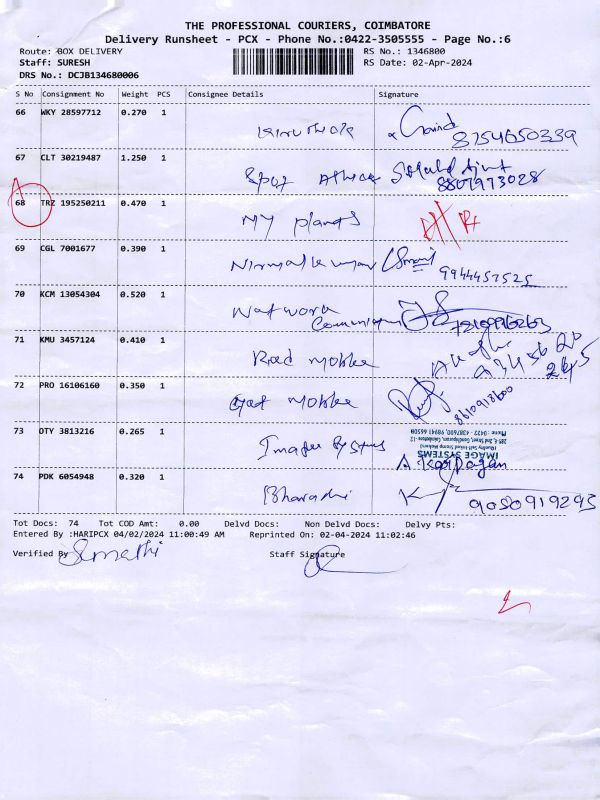 THE PROFESSIONAL COURIERS, COIMBATORE
Delivery Runsheet - PCX - Phone No.:0422-3505555 - Page No.:6
Route: BOX DELIVERY RS No.: 1346800
Staff: SURESH RS Date: 02-Apr-2024
DRS No.: DCJB134680006
S No Consignment No Weight PCS Consignee Details Signature
66 WKY 28597712 0.270 1
8754650339
67 CLT 30219487 1.250 1 Spot
8807973028
68 TRZ 195250211 0.470 1 My plants
69 CGL 7001677 0.390 1 Nirmal kumar
9944457525
70 KCM 13054304 0.520 1 Network
71 KMU 3457124 0.410 1 Road Mobile
72 PRO 16106160 0.350 1 Mobile
73 DTY 3813216 0.265 1 Image Systems
IMAGE SYSTEMS
74 PDK 6054948 0.320 1 Bharathi
9080919293
Tot Docs: 74 Tot COD Amt: 0.00 Delvd Docs: Non Delvd Docs: Delvy Pts:
Entered By :HARIPCX 04/02/2024 11:00:49 AM Reprinted On: 02-04-2024 11:02:46
Verified By Staff Signature